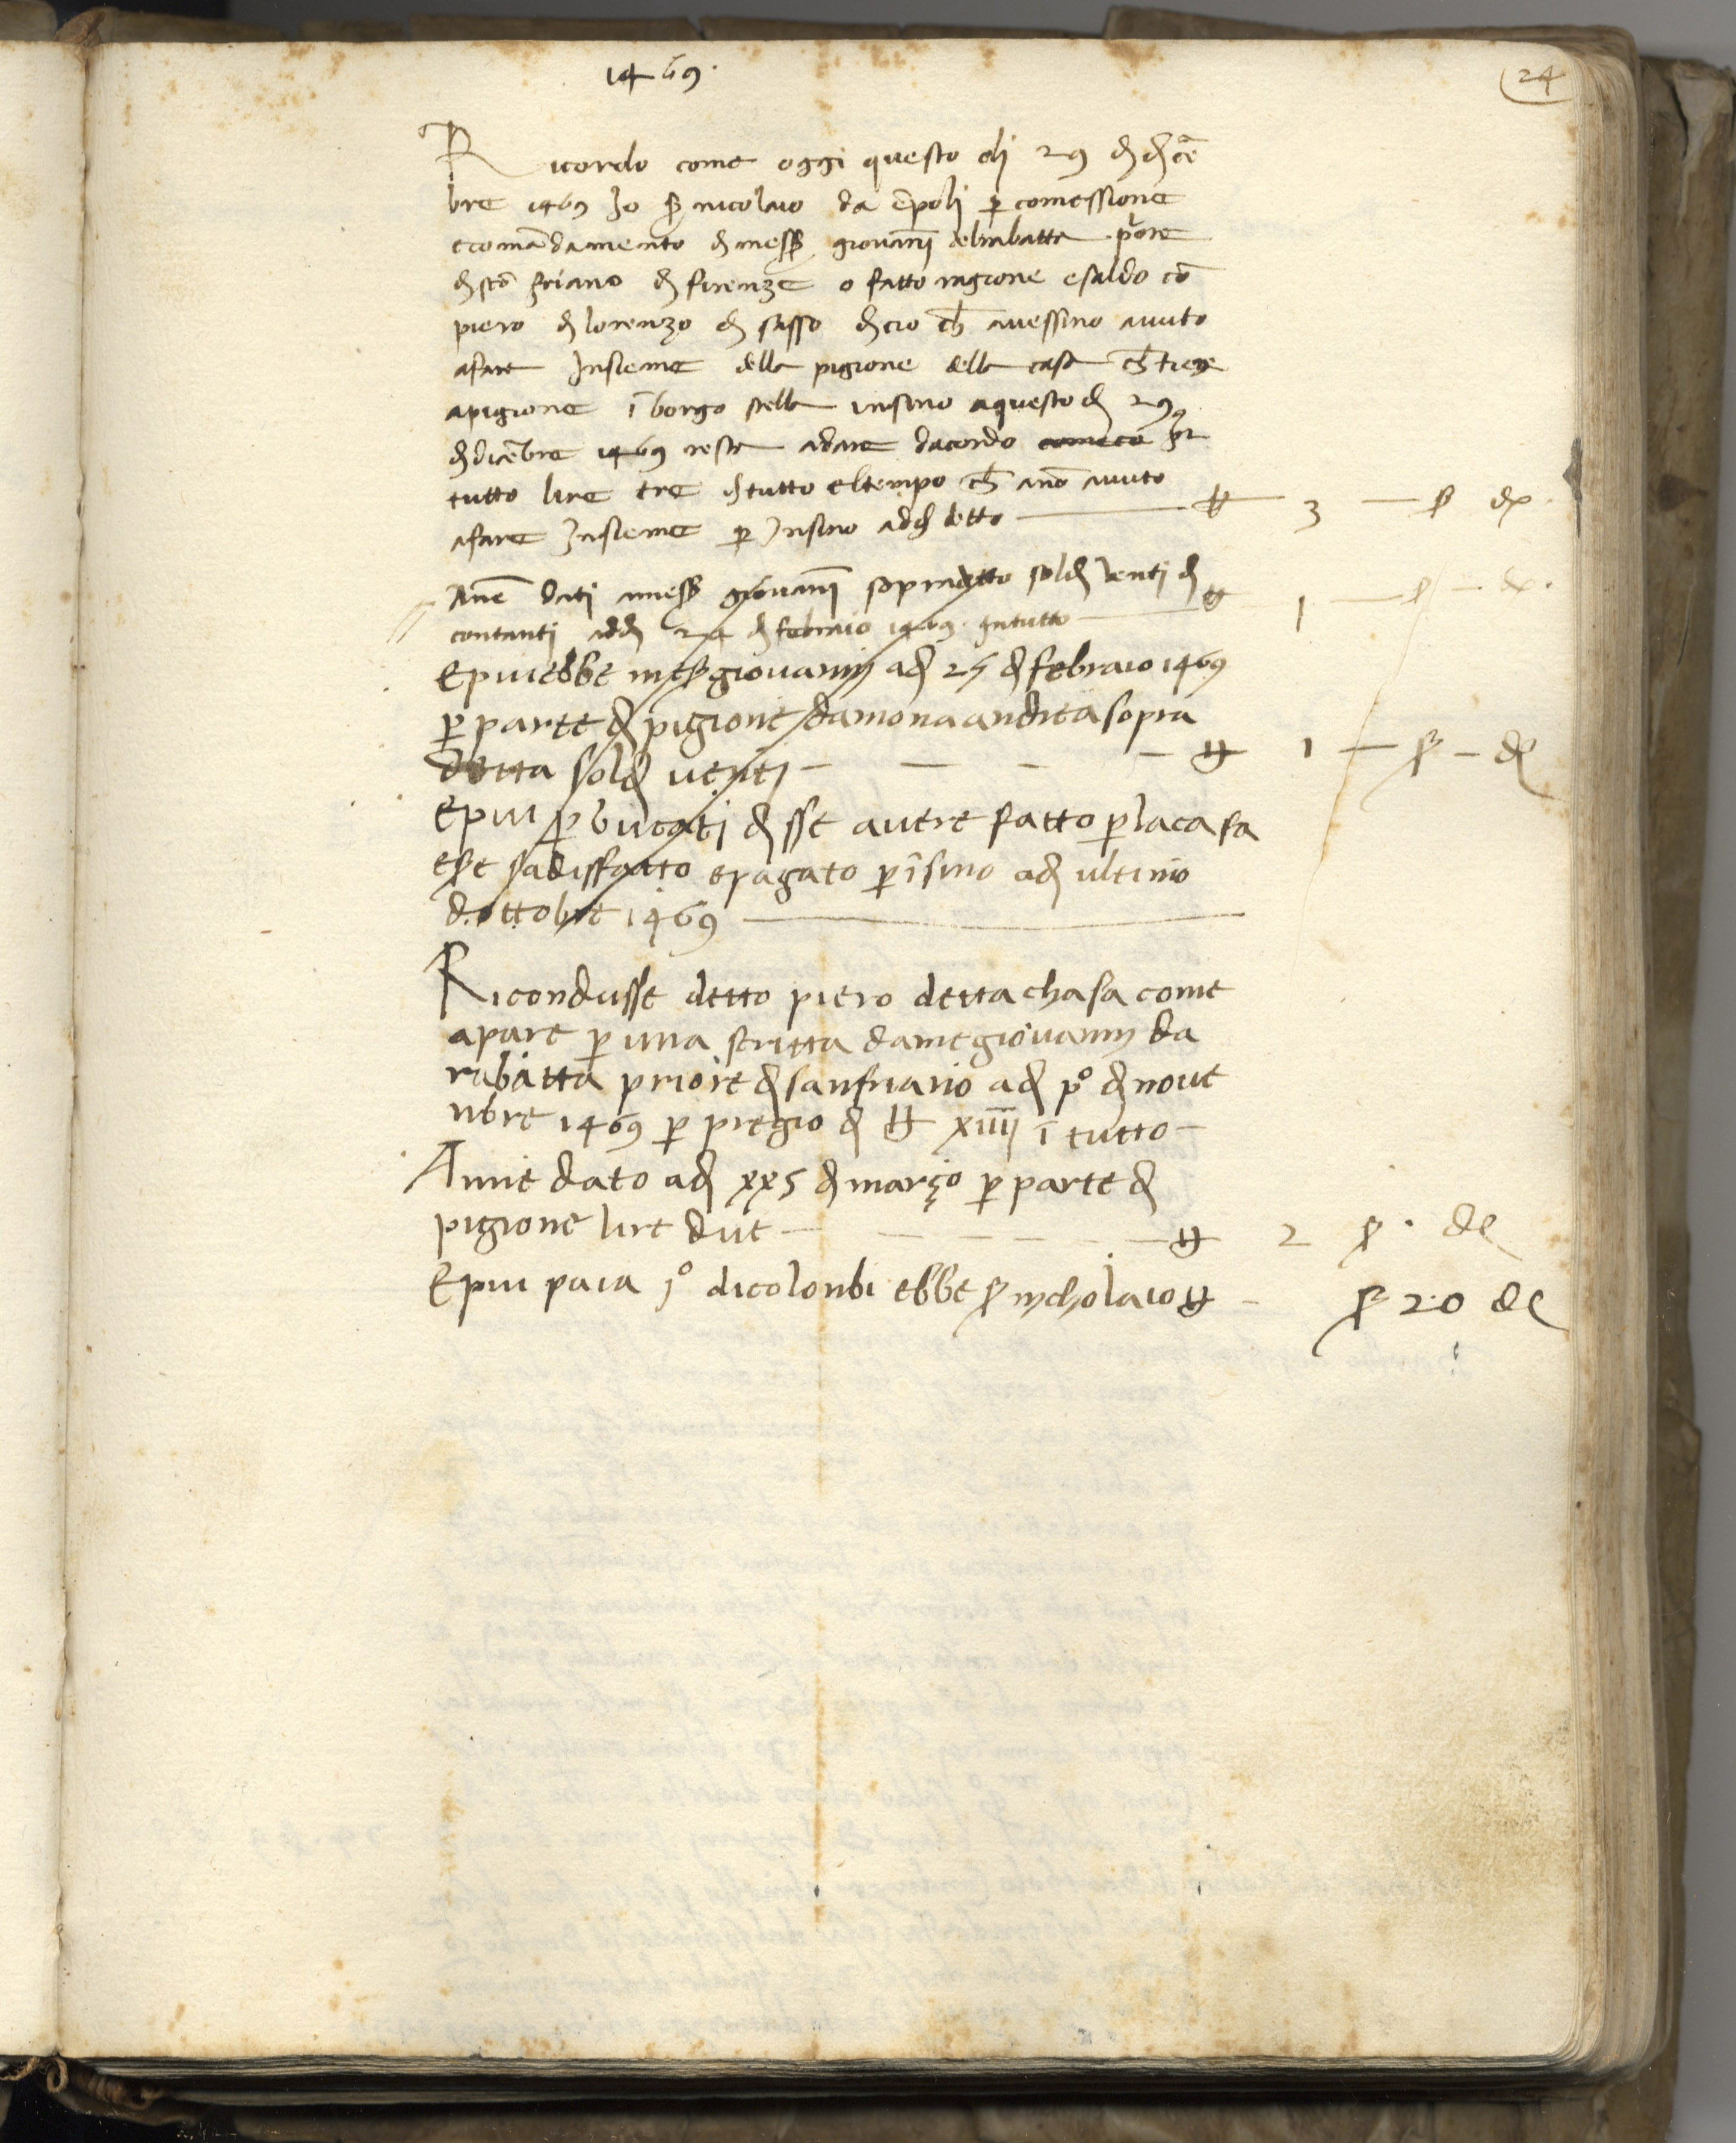 1469.
24
Ricordo come oggi questo dì 29 di dicē
bre 1469 Io Ser nicolaio da ēpoli per comessione
ecomādamento di messer giovāni darabatta priore
di scō friano di firenze o fatto ragione esaldo cō
piero di lorenzo di sasso di cio ch avessino auuto
afare Insieme della pigione della casa ch tiene
apigione ī borgo stella insino aquesto di 29
di dicēbre 1469 resta adare dacordo per
tutto lire tre di tutto eltempo ch āno auuto
afare Insieme per Insino addi detto — ₶ 3 — s d
Anē dati messer giovāni sopradetto soldi venti di
contanti addi 24 di febraio 1469 Intutto — ₶ 1 — s — d
Epiu ebbe messer giovannj adi 25 di febraio 1469
per parte di pigione da mona andrea sopra
detta soldi venti — — — — ₶ 1 — s — d
Epiu per bucati disse avere fatto per la casa
ese sadisfatto epagato per īsino adi ultimo
dottobre 1469 —
Ricondusse detto piero detta chasa come
apare per una scritta dame giovannj da
rabatta priore di sanfriano adi po di nove
nbre 1469 per pregio di ₶ xiiij ī tutto —
Anne dato adi xx5 di março per parte di
pigione lire due — — — — ₶ 2 s · d
Epiu paia jo dicolonbi ebbe ser njcholaio ₶ — s 20 d